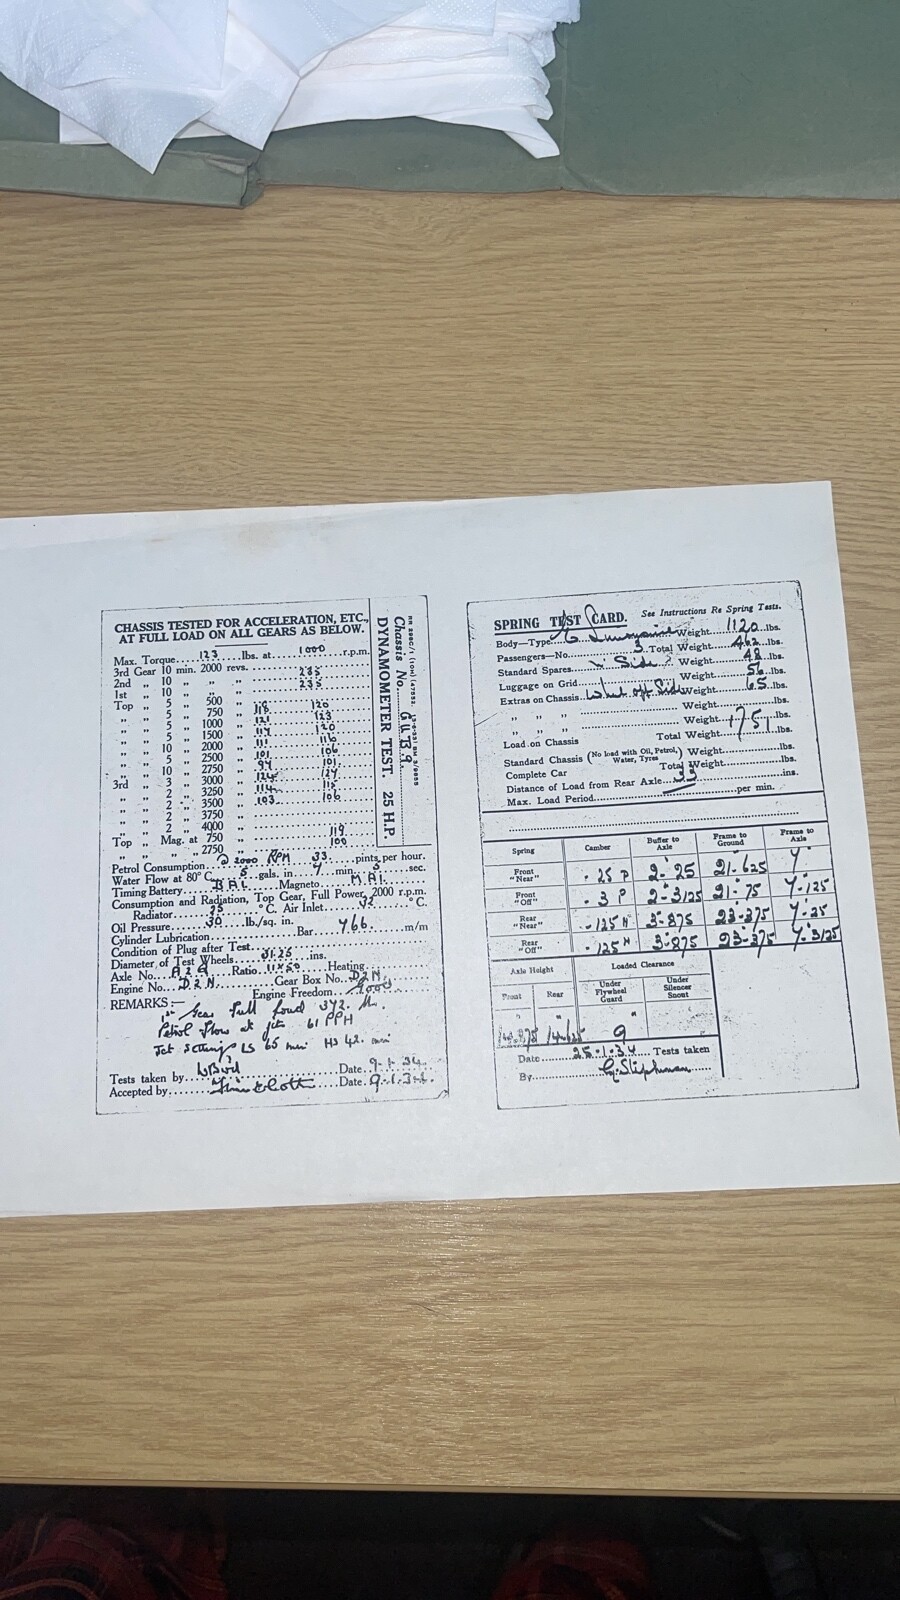 CHASSIS TESTED FOR ACCELERATION, ETC.,
AT FULL LOAD ON ALL GEARS AS BELOW.
Max. Torque 123 lbs. at 1000 r.p.m.
3rd Gear 10 min. 2000 revs. 235
2nd „ 10 „ „ „ 235
1st „ 10 „ „ „
Top „ 5 „ 500 „ 118 120
„ „ 5 „ 750 „ 121 123
„ „ 5 „ 1000 „ 117 120
„ „ 5 „ 1500 „ 111 116
„ „ 10 „ 2000 „ 101 106
„ „ 5 „ 2500 „ 94 101
„ „ 10 „ 2750 „
3rd „ 3 „ 3000 „ 127
„ „ 2 „ 3250 „ 114 115
„ „ 2 „ 3500 „ 103 106
„ „ 2 „ 3750 „
„ „ 2 „ 4000 „
Top „ Mag. at 750 „ 119
„ „ „ „ 2750 „ 100
Petrol Consumption @ 2000 RPM 33 pints per hour.
Water Flow at 80° C. 5 gals. in 7 min. sec.
Timing Battery BAL Magneto MAL
Consumption and Radiation, Top Gear, Full Power, 2000 r.p.m.
Radiator 95 °C. Air Inlet 32 °C.
Oil Pressure 30 lb./sq. in.
Cylinder Lubrication Bar 766 m/m
Condition of Plug after Test
Diameter of Test Wheels 31.25 ins.
Axle No. Ratio 11 x 50 Heating
Engine No. D2N Gear Box No. D2N
Engine Freedom Good
REMARKS:—
1st Gear Full Load 372
Petrol Flow at jets 61 PPH
Jet Settings LS 65 min HS 42 min
Tests taken by WBird Date 9.1.34.
Accepted by Date 9.1.34.
Chassis No. GUB.
DYNAMOMETER TEST. 25 H.P.
SPRING TEST CARD. See Instructions Re Spring Tests.
Body—Type Limousine Weight 1120 lbs.
Passengers—No. 3 Total Weight 462 lbs.
Standard Spares Side Weight 48 lbs.
Luggage on Grid Weight 56 lbs.
Extras on Chassis Wheel off Side Weight 65 lbs.
„ „ „ Weight lbs.
„ „ „ Weight lbs.
Load on Chassis Total Weight 1751 lbs.
Standard Chassis (No load with Oil, Petrol, Water, Tyres) Weight lbs.
Complete Car Total Weight lbs.
Distance of Load from Rear Axle 33 ins.
Max. Load Period per min.
Spring Camber Buffer to Axle Frame to Ground Frame to Axle
Front "Near" .25 P 2.25 21.625 7"
Front "Off" .3 P 2.3125 21.75 7.125
Rear "Near" .125 N 3.875 23.375 7.25
Rear "Off" .125 N 3.875 23.375 7.3125
Axle Height Loaded Clearance
Front Rear Under Flywheel Guard Under Silencer Snout
14.625 9
Date 25.1.34 Tests taken
By G. Stephenson